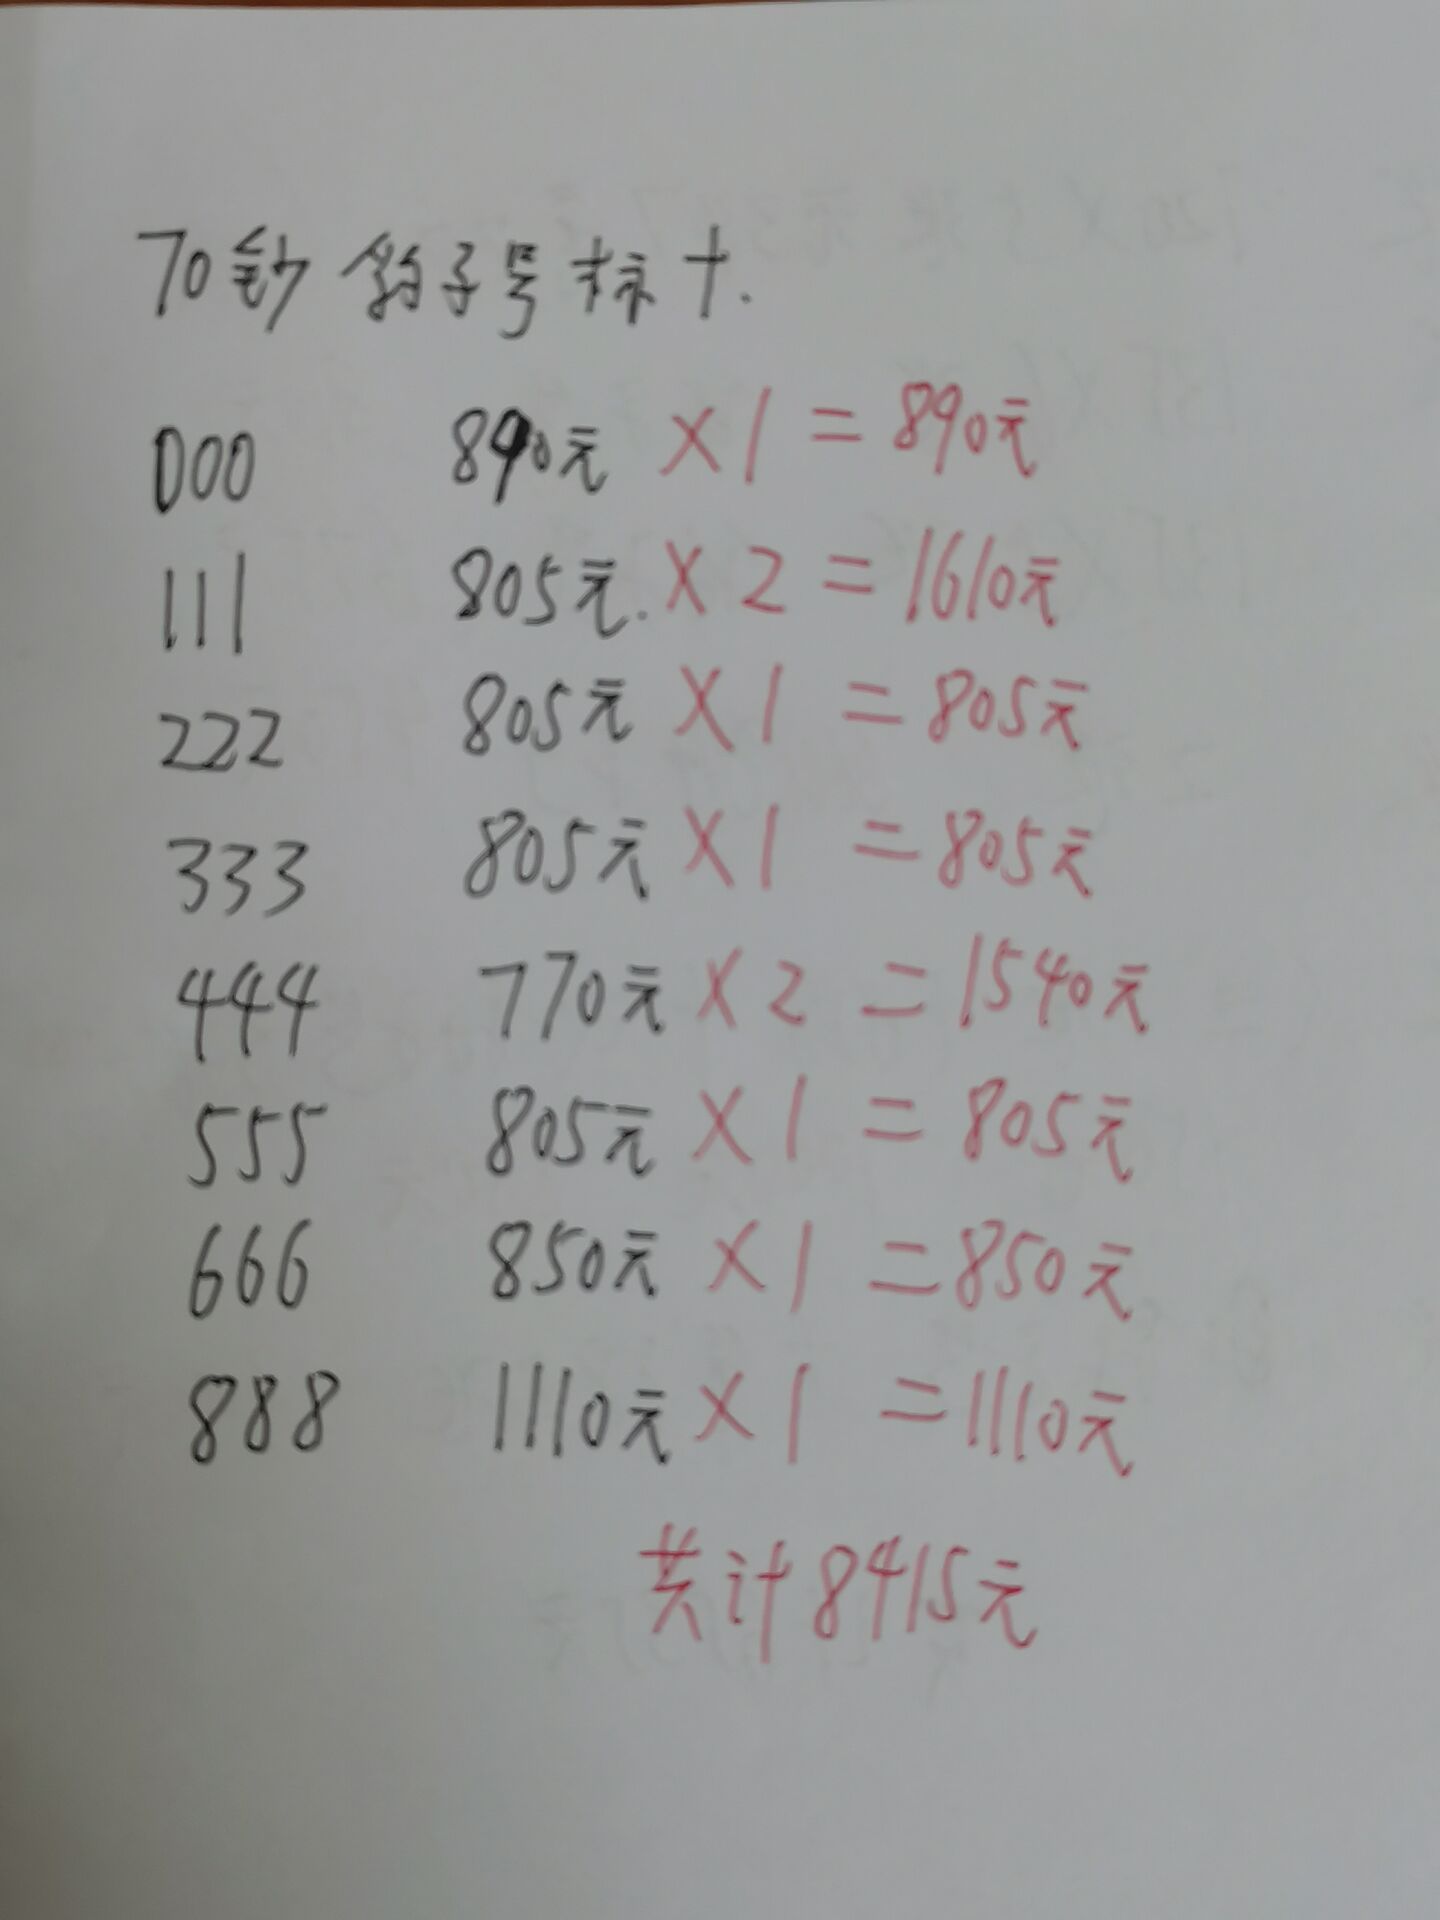 70钞豹子号标十.
000 890元 ×1=890元
111 805元.×2=1610元
222 805元×1=805元
333 805元×1=805元
444 770元×2=1540元
555 805元×1=805元
666 850元×1=850元
888 1110元×1=1110元
共计8415元